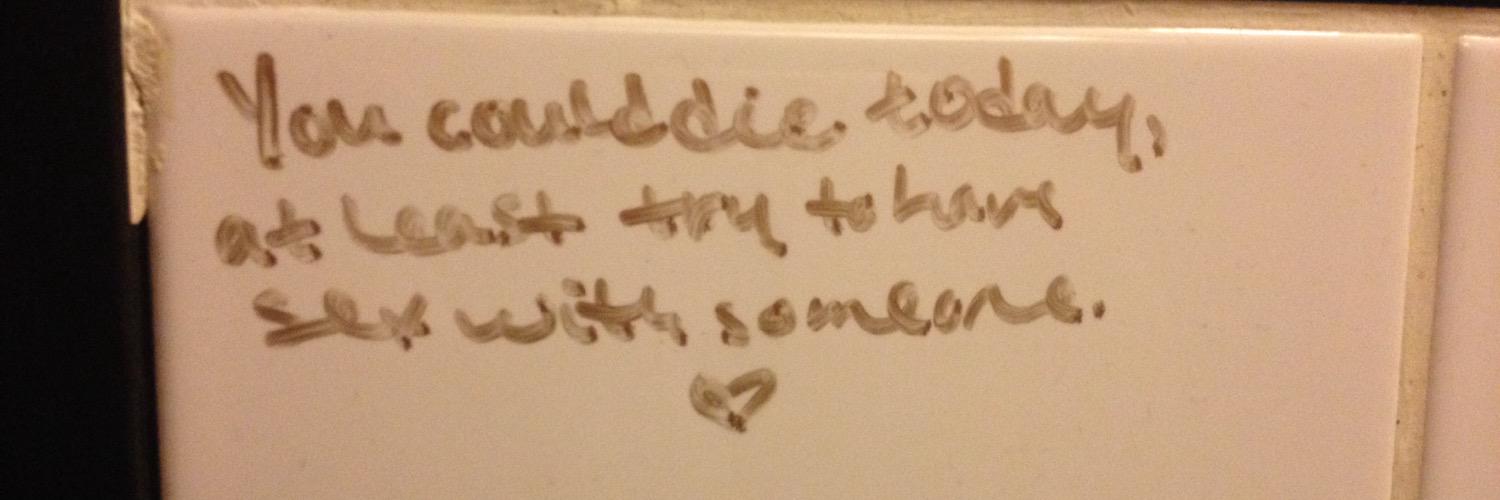 You could die today,
at least try to have
sex with someone.
♡